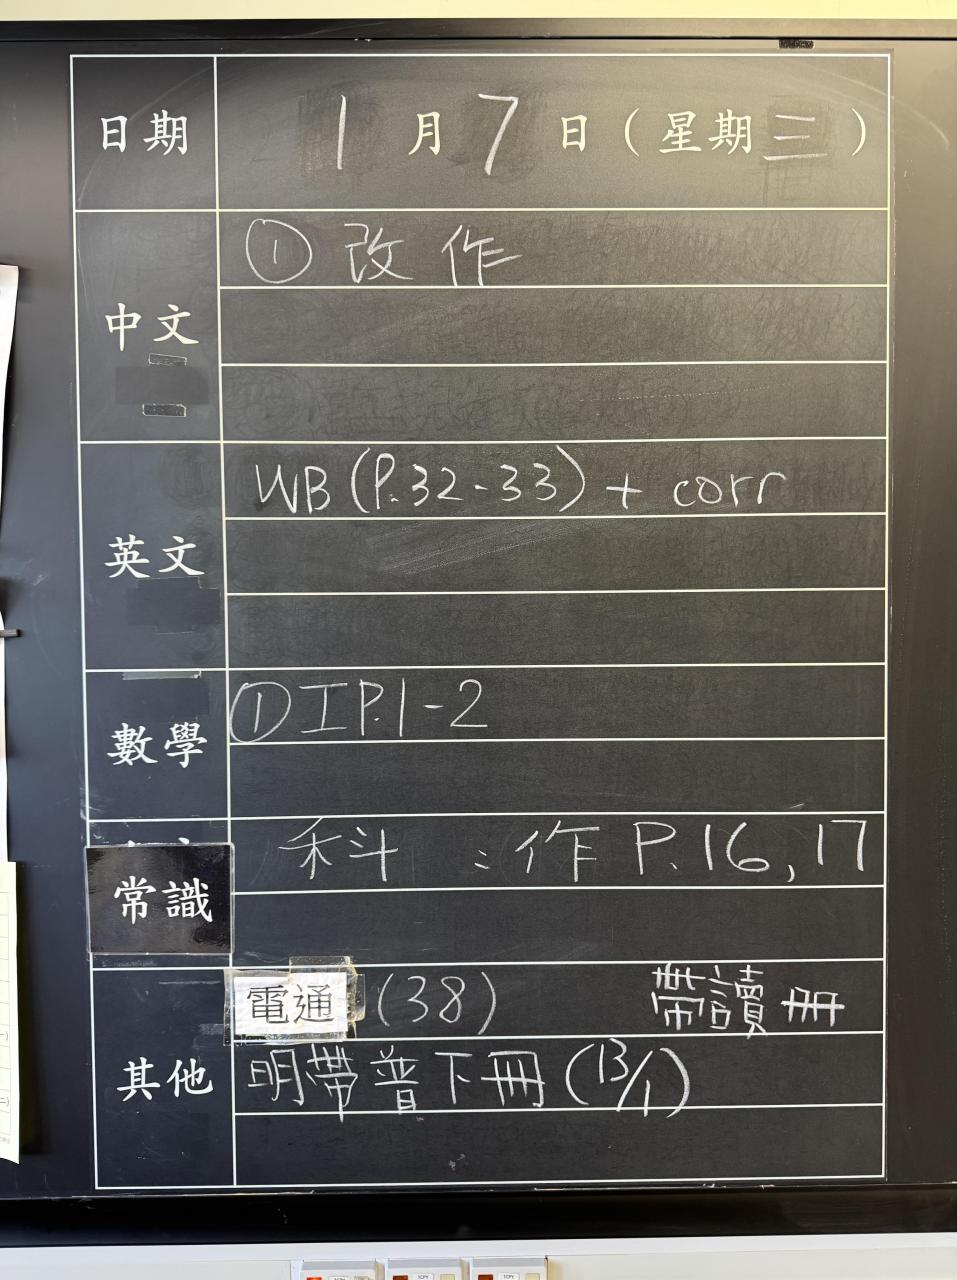 日期 1月7日(星期三)
中文 ①改作
英文 WB (P.32-33) + corr
數學 ①工P.1-2
常識 科:作P.16,17
其他 電通 (38) 帶讀冊
明帶普下冊(13/1)